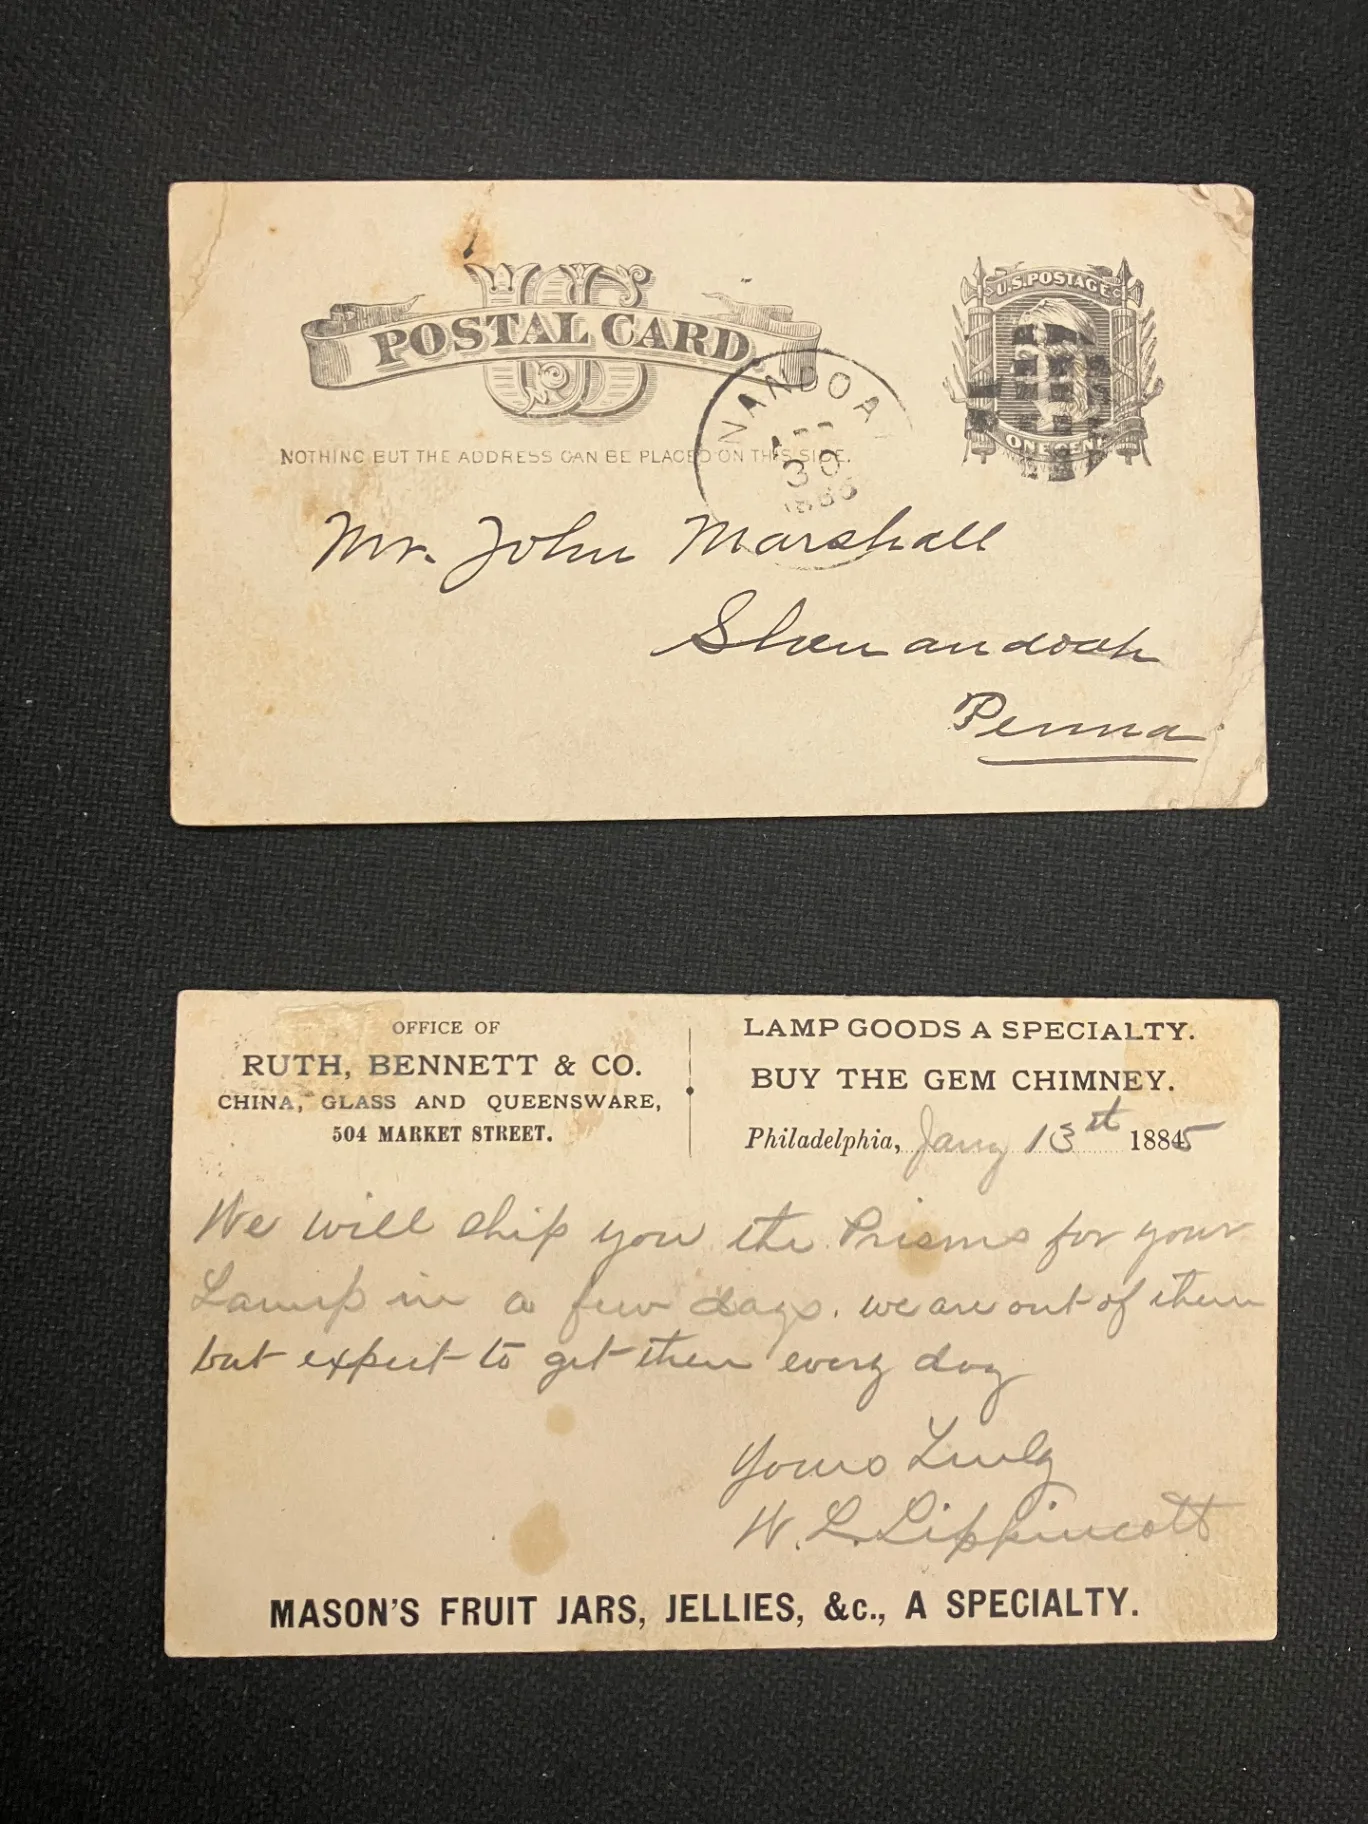 US
POSTAL CARD.
NOTHING BUT THE ADDRESS CAN BE PLACED ON THIS SIDE.
U.S. POSTAGE
ONE CENT
NANDOA
30
Mr. John Marshall
Shenandoah
Penna
OFFICE OF
RUTH, BENNETT & CO.
CHINA, GLASS AND QUEENSWARE,
504 MARKET STREET.
LAMP GOODS A SPECIALTY.
BUY THE GEM CHIMNEY.
Philadelphia, Jany 13st 1885
We will ship you the Prisms for your
Lamp in a few days. we are out of them
but expect to get them every day
Yours Truly
W. L. Lippincott
MASON'S FRUIT JARS, JELLIES, &c., A SPECIALTY.